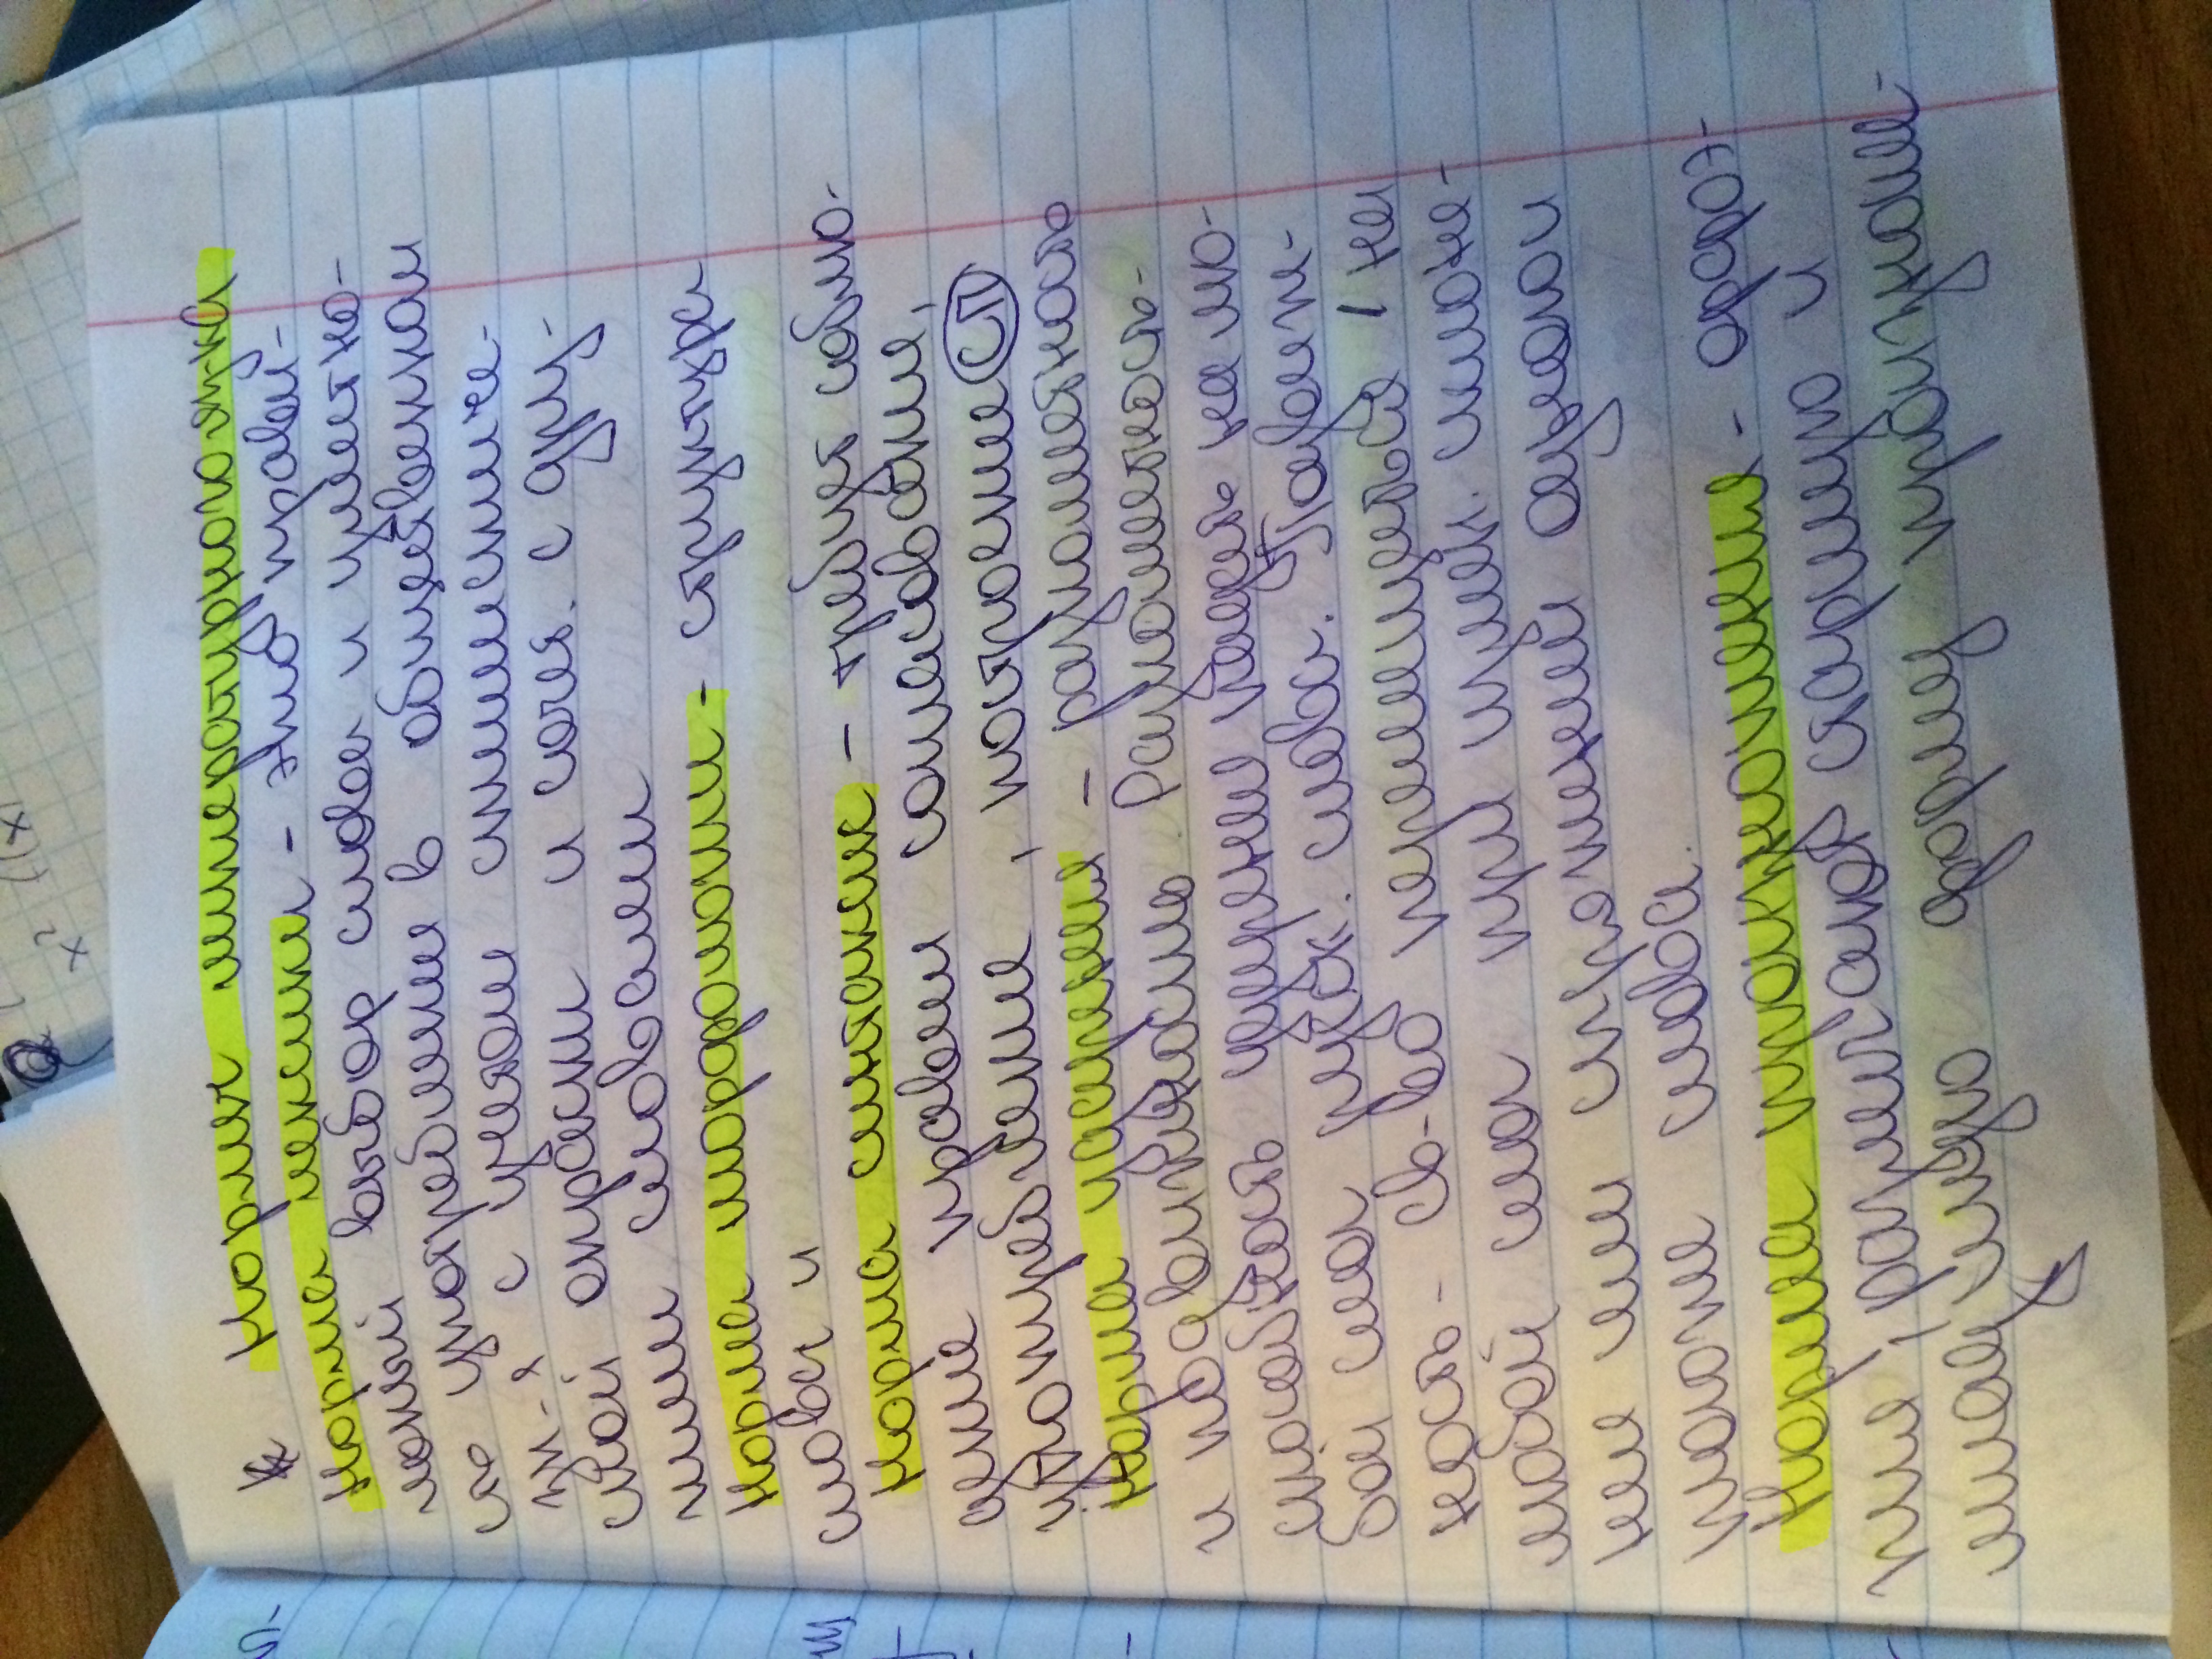 x² f(x)
Нормы литературного яз-ка
Норма лексики - это прави-
льный выбор слова и уместно-
сть употребление в общественном
зн-я с учетом стилистиче-
ской окраски и сочет. с дру-
гими словами
Норма морфологии - структура
слова и
Норма синтаксис - требует соблю-
дение правил согласование,
употребление, построение СП
Норма ударения - разноместность
и подвижность. Разноместность-
способность ударение падать на лю-
бой слог русск. слова. Подвиж-
ность - св-во перемещаться / на
любой слог при измен. склоне-
нии или спряжении одного и
того же слова.
Норма произношения - орфоэ-
пия, различают старшую и
младшую форму произноше-